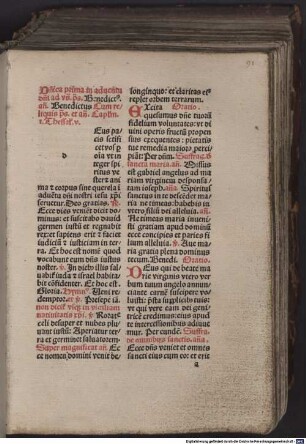 Dñica prima in aduentu
dñi ad vṗ. ps. Benedict⁹.
añ. Benedictus Cum re-
liquis ps. et añ. Capĩm
1. Thess. v.
Eus pa-
cis sctifi
cet vos ꝑ
oia vt in
teger spi
ritus ve
d
ster et ani
ma ⁊ corpus sine querela ĩ
aduẽtu dñi nostri iesu xp̃i
seruetur. Deo gratias.
Ecce dies veniẽt dicit do
minus: et suscitabo dauid
germen iustũ et regnabit
rex: et sapiens erit ⁊ faciet
iudiciũ ⁊ iusticiam in ter-
ra. Et hoc est nomẽ quod
vocabunt eum dñs iustus
noster. ℣. In dieb⁹ illis sal
uabit̃ iuda ⁊ israel habita
bit cõfidenter. Et hoc est.
Gloria. Hymn⁹. Veni re
demptor. et ℣.
natiuitatis xp̃i ℣. Rorate
celi desuper et nubes plu
ant iustũ: Aperiatur ter-
ra et germinet saluatorem.
Super magnificat añ. Ec
ce nomen domini venit de
longinquo: et claritas ei⁹
replet orbem terrarum.
Oratio.
EXcita
quesumus dñe tuorũ
fidelium voluntates: vt di
uini operis fructũ propen
sius exequentes: pietatis
tue remedia maiora perci-
piãt: Per dñm. Suffrag. d̃
sancta maria. añ. Missus
est gabriel angelus ad ma
riam virginem desponsa-
tam ioseph. alia Spiritus
sanctus in te descẽdet ma
ria ne timeas: habebis in
vtero filiũ dei alleluia. añ.
Ne timeas maria inueni-
sti gratiam apud dominũ
ecce concipies et paries fi
lium alleluia. ℣. Aue ma-
ria gratia plena dominus
tecum. Benedi. Oratio.
DEus qui de beate ma
rie virginis vtero ver
bum tuum angelo annun
ciante carnẽ suscipere vo-
luisti: p̃sta suplicib⁹ tuis:
vt qui vere eam dei geni-
tricẽ credimus: eius apud
te intercessionibus adiuue
mur. Per eundẽ. Suffra.
de omnibus sanctis. añ.
Ecce dñs veniet et omnes
sancti eius cum eo: et erit
a